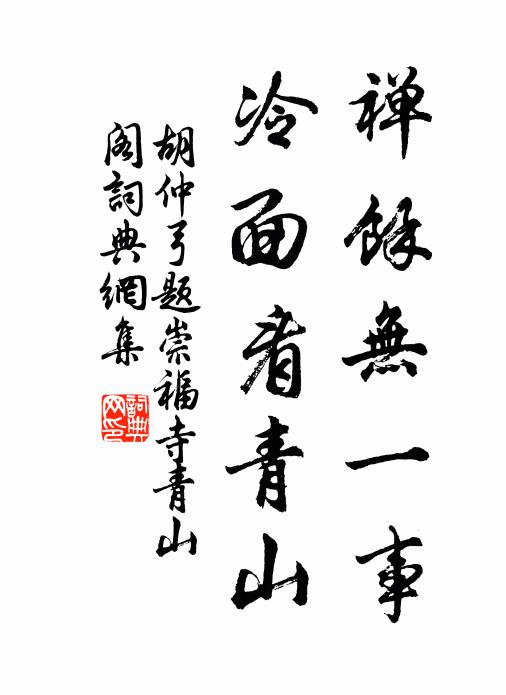 禅餘無一事
冷面看青山
胡仲弓題崇福寺青山
阁詞典網集
詞典网印